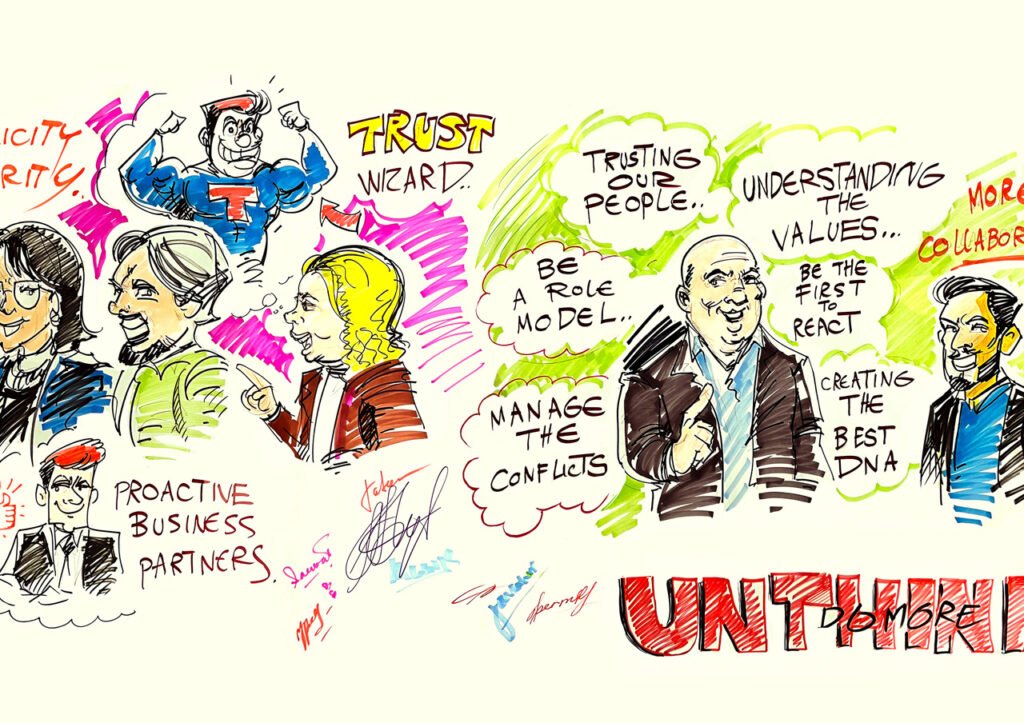 ICITY
RITY.
TRUST
WIZARD..
T
PROACTIVE
BUSINESS
PARTNERS.
TRUSTING
OUR
PEOPLE..
UNDERSTANDING
THE
VALUES...
BE
A ROLE
MODEL..
BE THE
FIRST
TO
REACT
MANAGE
THE
CONFLICTS
CREATING
THE
BEST
DNA
MORE
COLLABOR
UNTHIN
DO MORE